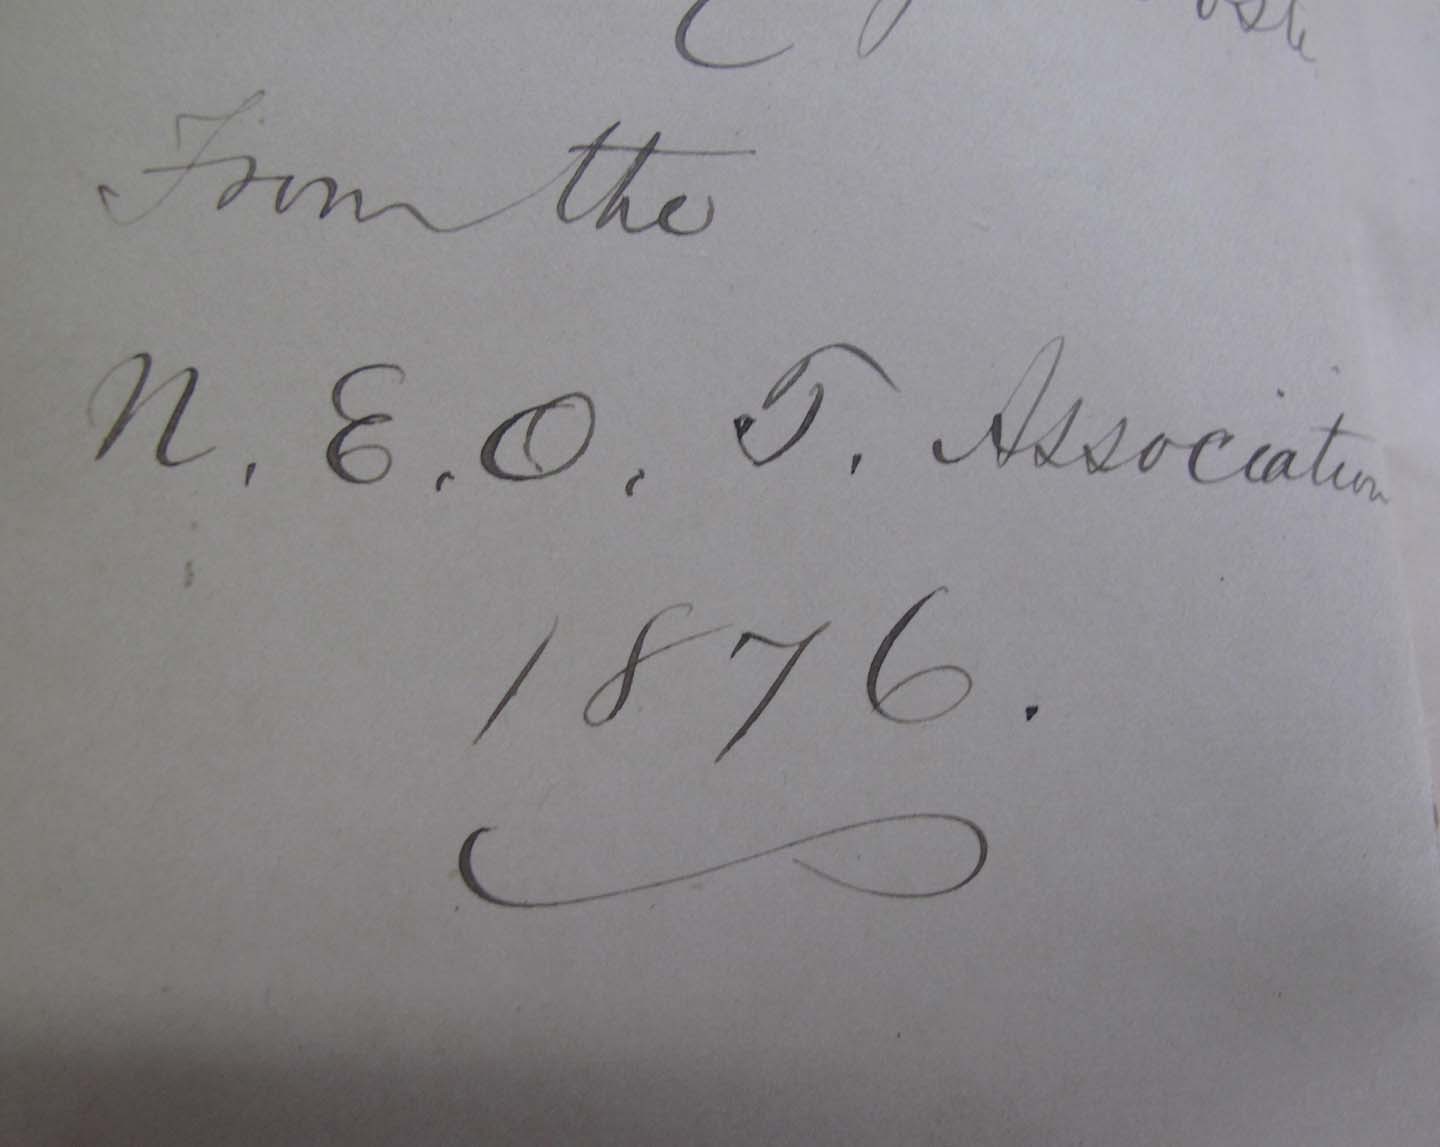 From the
N. E. O. T. Association
1876.